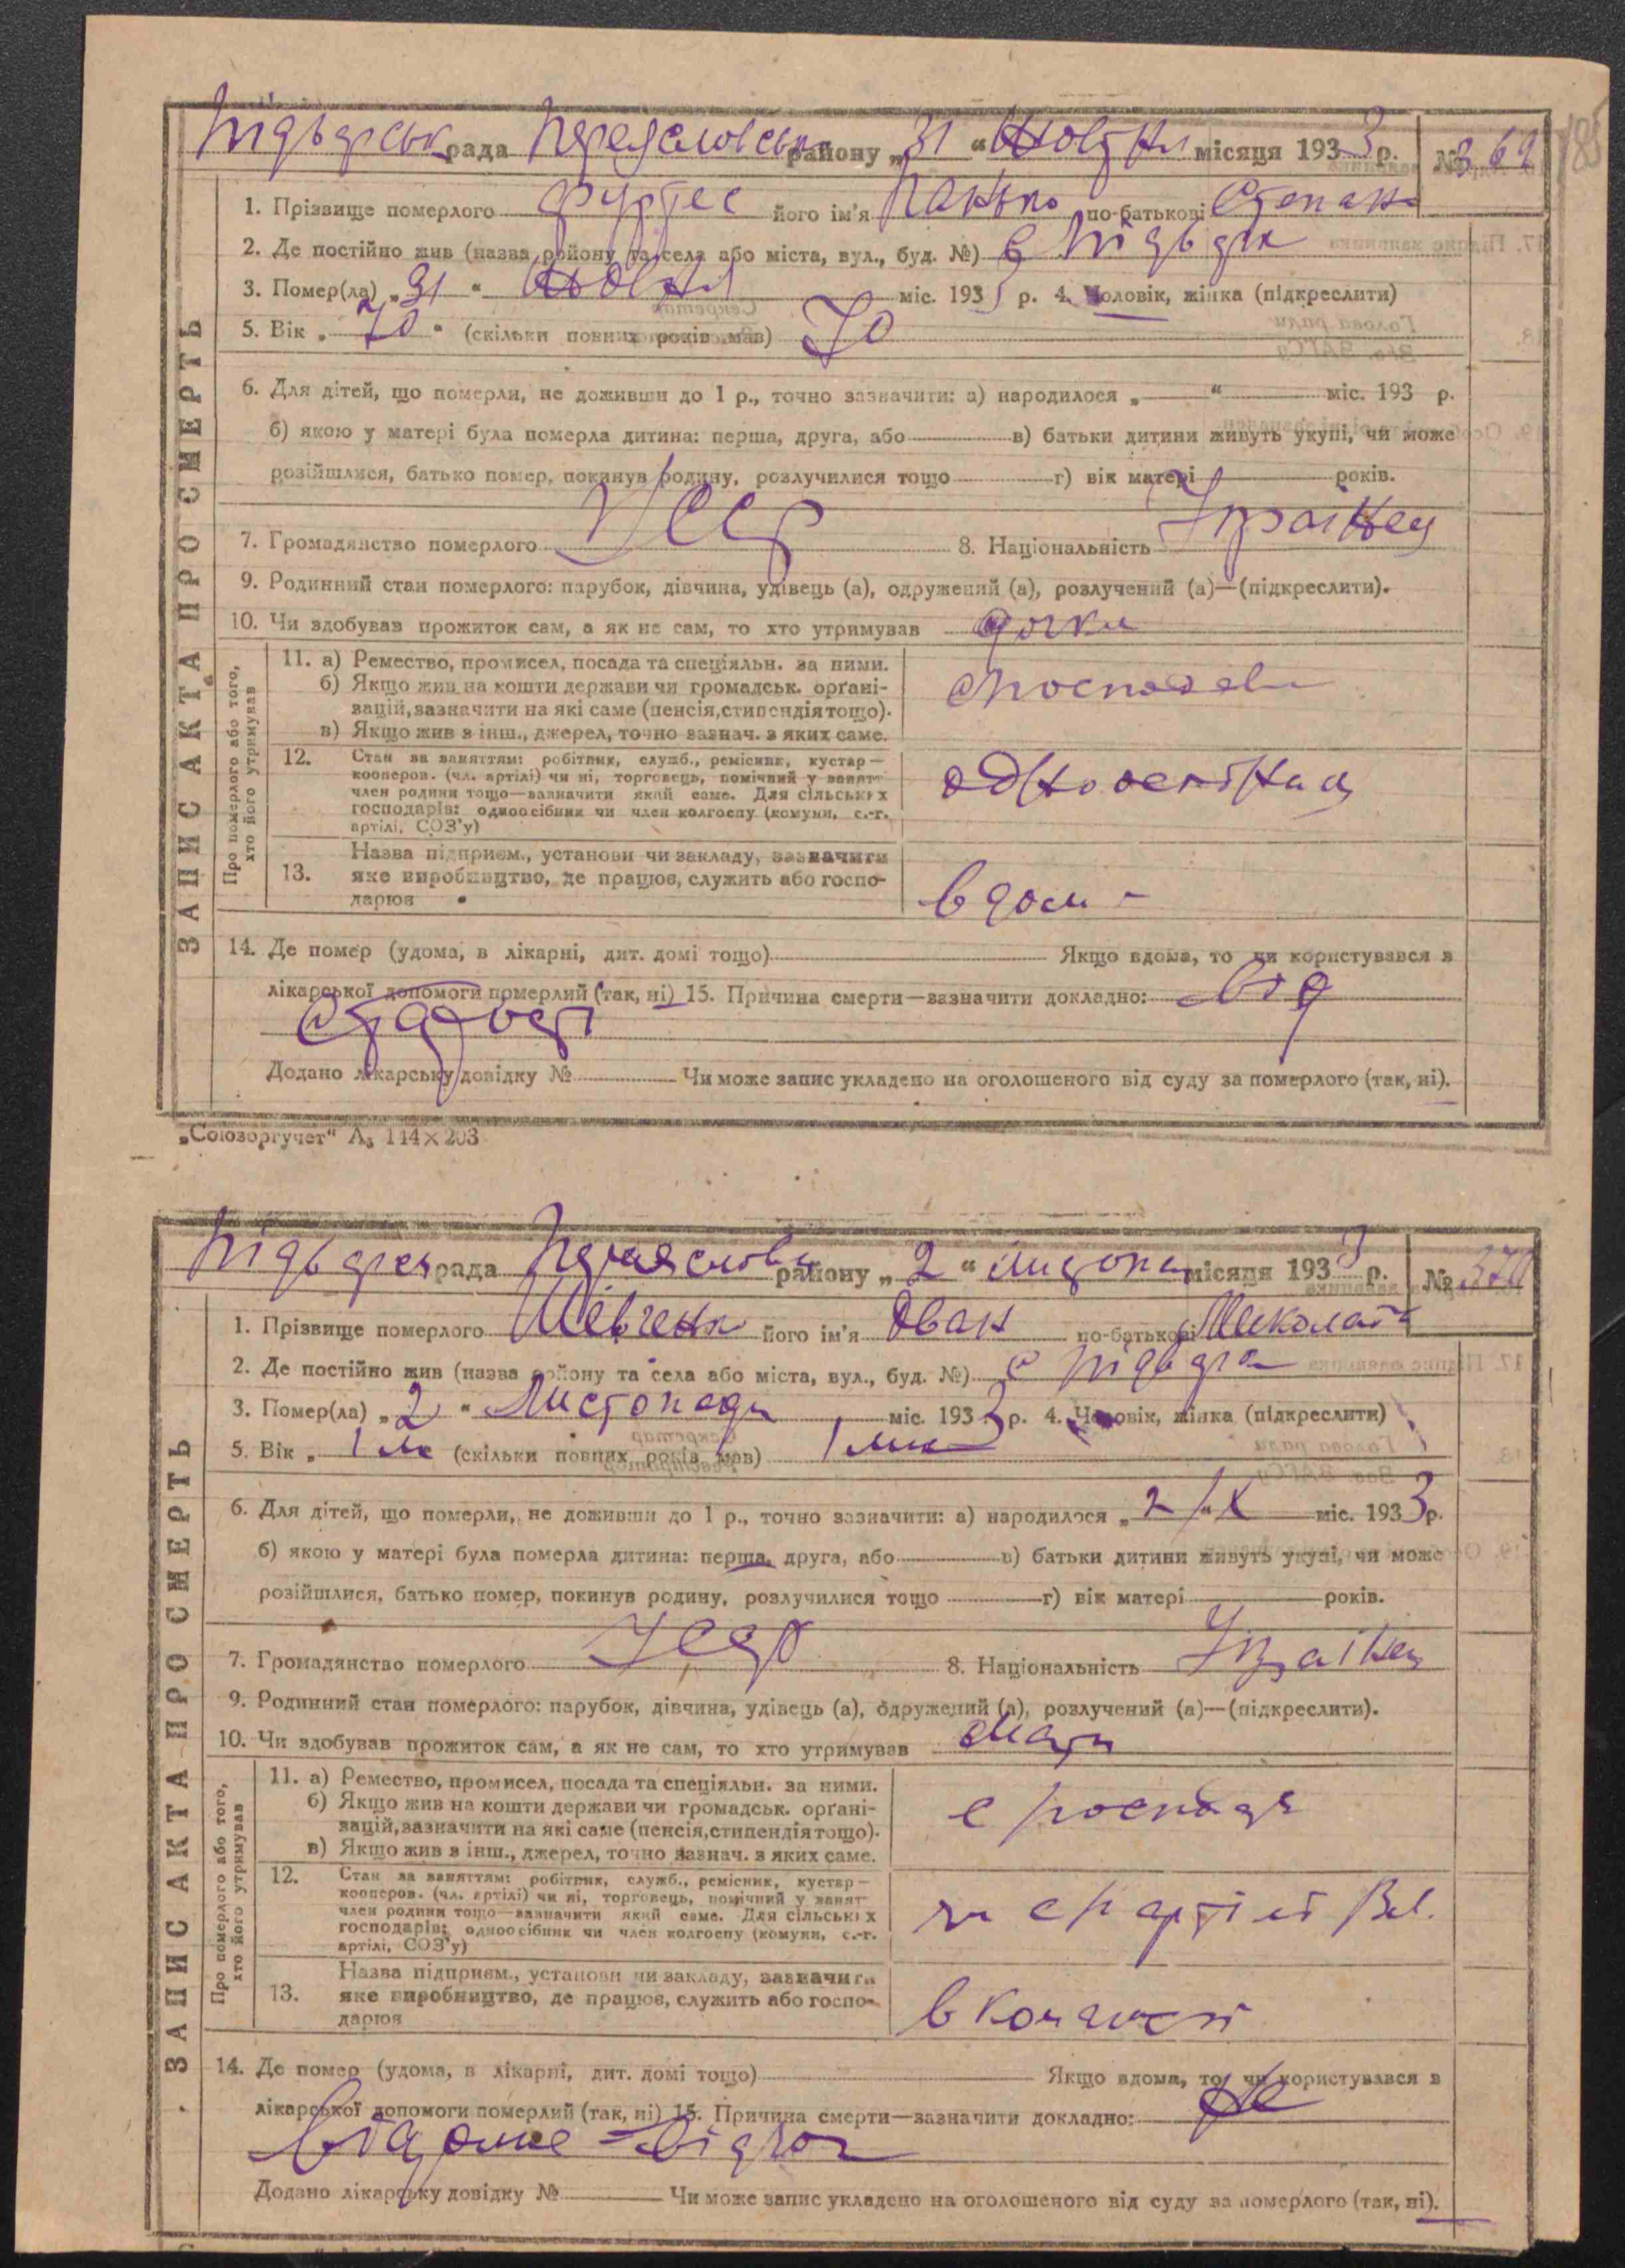 рада району „31“ місяця 1933 р. № 369
185
ЗАПИС АКТА ПРО СМЕРТЬ
1. Прізвище померлого його ім'я Панько по-батькові Степан
2. Де постійно жив (назва району та села або міста, вул., буд. №) с
3. Помер(ла) „31“ Жовтня міс. 193 р. 4. Чоловік, жінка (підкреслити)
5. Вік „70“ (скільки повних років мав) 70
6. Для дітей, що померли, не доживши до 1 р., точно зазначити: а) народилося „ “ міс. 193 р.
б) якою у матері була померла дитина: перша, друга, або в) батьки дитини живуть укупі, чи може
розійшлися, батько помер, покинув родину, розлучилися тощо г) вік матері років.
7. Громадянство померлого УССР 8. Національність Украінец
9. Родинний стан померлого: парубок, дівчина, удівець (а), одружений (а), розлучений (а)—(підкреслити).
10. Чи здобував прожиток сам, а як не сам, то хто утримував дочка
Про померлого або того, хто його утримував
11. а) Ремество, промисел, посада та спеціяльн. за ними.
б) Якщо жив на кошти держави чи громадськ. орґані-
зацій, зазначити на які саме (пенсія, стипендія тощо).
в) Якщо жив з інш., джерел, точно зазнач. з яких саме.
12. Стан за заняттям: робітник, служб., ремісник, кустар—
кооперов. (чл. артілі) чи ні, торговець, помічний у занят-
член родини тощо—зазначити який саме. Для сільських
господарів: одноосібник чи член колгоспу (комуни, с.-г.
артілі, СОЗ'у)
13. Назва підприєм., установи чи закладу, зазначити
яке виробництво, де працює, служить або госпо-
дарює
в дом
14. Де помер (удома, в лікарні, дит. домі тощо) Якщо вдома, то чи користувався з
лікарської допомоги померлий (так, ні) 15. Причина смерти—зазначити докладно: від
старості
Додано лікарську довідку № Чи може запис укладено на оголошеного від суду за померлого (так, ні).
„Союзоргучет“ А₅ 144×203
рада району „2“ місяця 1933 р. № 370
ЗАПИС АКТА ПРО СМЕРТЬ
1. Прізвище померлого Шевченк його ім'я Іван по-батькові Миколаів
2. Де постійно жив (назва району та села або міста, вул., буд. №) с
3. Помер(ла) „2“ Листопада міс. 1933 р. 4. Чоловік, жінка (підкреслити)
5. Вік „1 м (скільки повних років мав) 1 мис
6. Для дітей, що померли, не доживши до 1 р., точно зазначити: а) народилося „2/“X міс. 1933 р.
б) якою у матері була померла дитина: перша, друга, або в) батьки дитини живуть укупі, чи може
розійшлися, батько помер, покинув родину, розлучилися тощо г) вік матері років.
7. Громадянство померлого УССР 8. Національність Украінец
9. Родинний стан померлого: парубок, дівчина, удівець (а), одружений (а), розлучений (а)—(підкреслити).
10. Чи здобував прожиток сам, а як не сам, то хто утримував мати
Про померлого або того, хто його утримував
11. а) Ремество, промисел, посада та спеціяльн. за ними.
б) Якщо жив на кошти держави чи громадськ. орґані-
зацій, зазначити на які саме (пенсія, стипендія тощо).
в) Якщо жив з інш., джерел, точно зазнач. з яких саме.
12. Стан за заняттям: робітник, служб., ремісник, кустар—
кооперов. (чл. артілі) чи ні, торговець, помічний у занят-
член родини тощо—зазначити який саме. Для сільських
господарів: одноосібник чи член колгоспу (комуни, с.-г.
артілі, СОЗ'у)
13. Назва підприєм., установи чи закладу, зазначити
яке виробництво, де працює, служить або госпо-
дарює
14. Де помер (удома, в лікарні, дит. домі тощо) Якщо вдома, то чи користувався з
лікарської допомоги померлий (так, ні) 15. Причина смерти—зазначити докладно: не
Додано лікарську довідку № Чи може запис укладено на оголошеного від суду за померлого (так, ні).